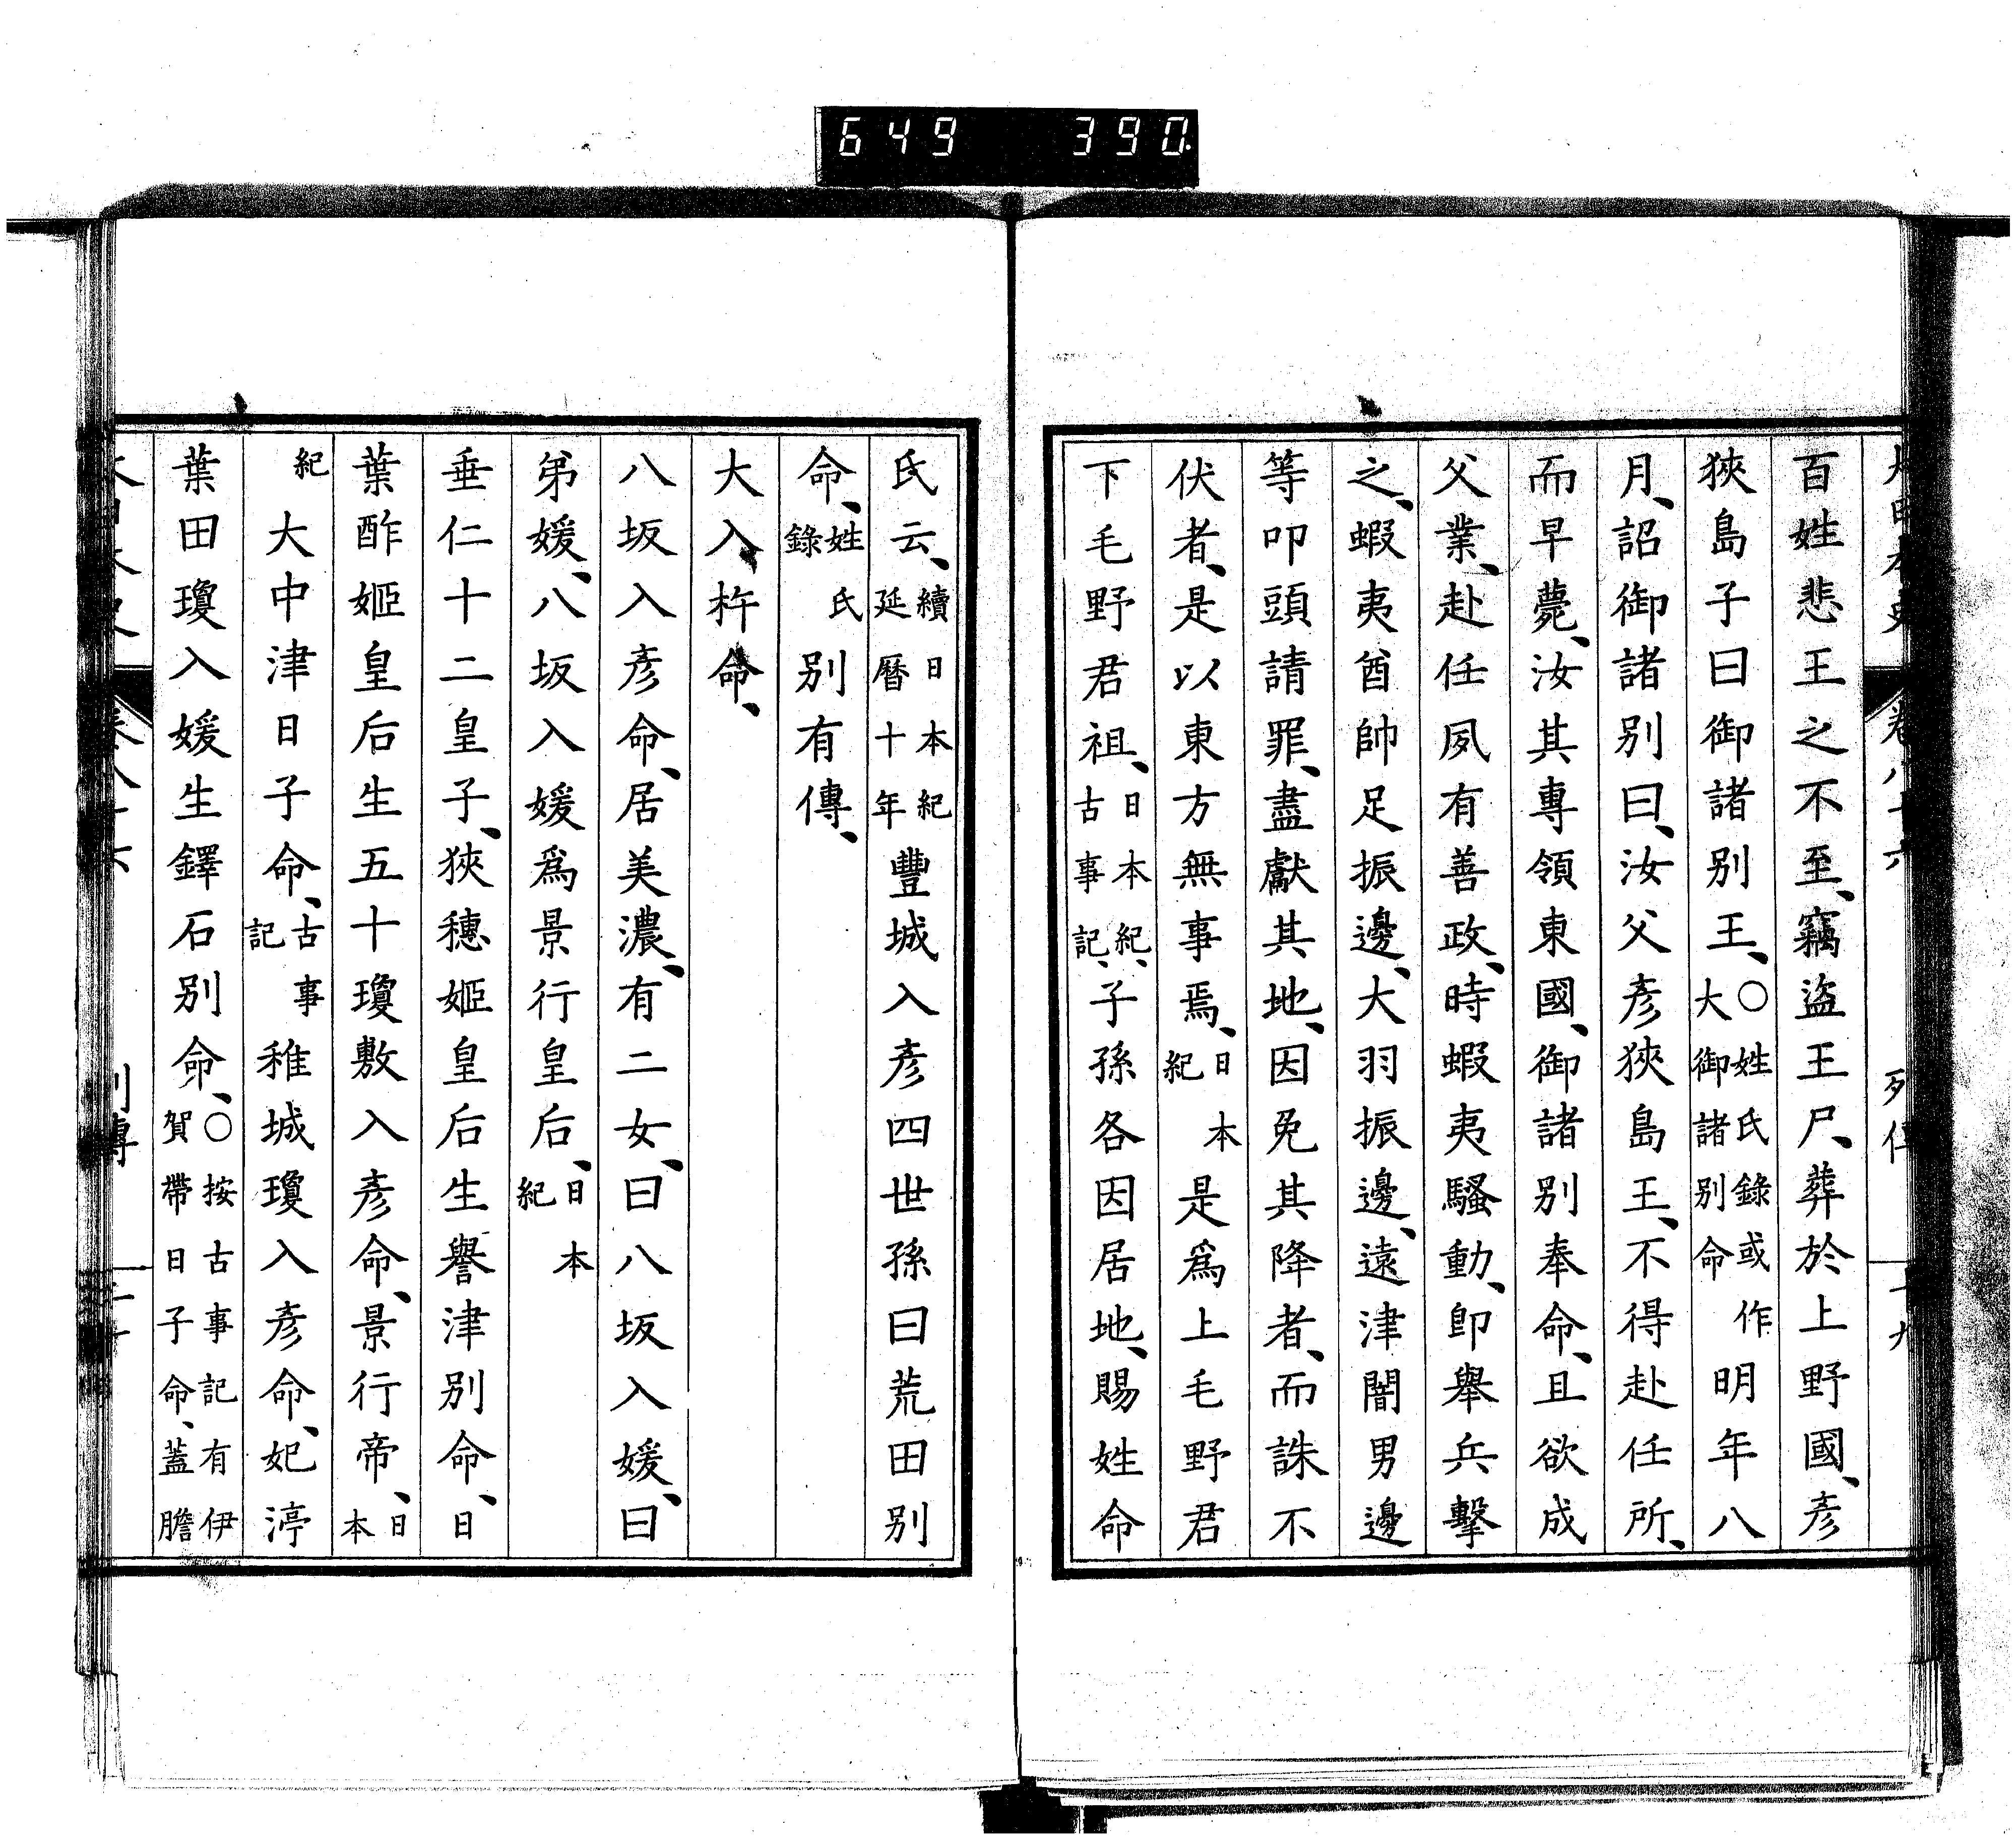 649 390
百姓悲王之不至、竊盜王尸、葬於上野國、彥
狹島子曰御諸別王、○姓氏錄或作大御諸別命明年八
月、詔御諸別曰、汝父彥狹島王、不得赴任所、
而早薨、汝其專領東國、御諸別奉命、且欲成
父業、赴任夙有善政、時蝦夷騷動、卽舉兵擊
之、蝦夷酋帥足振邊、大羽振邊、遠津闇男邊
等叩頭請罪、盡獻其地、因免其降者、而誅不
伏者、是以東方無事焉、日本紀是爲上毛野君
下毛野君祖、日本紀、古事記、子孫各因居地、賜姓命
氏云、續日本紀延曆十年豐城入彥四世孫曰荒田別
命、姓氏錄別有傳、
大入杵命、
八坂入彥命、居美濃、有二女、曰八坂入媛、曰
弟媛、八坂入媛爲景行皇后、日本紀
垂仁十二皇子、狹穗姬皇后生譽津別命、日
葉酢姬皇后生五十瓊敷入彥命、景行帝、日本
紀大中津日子命、古事記稚城瓊入彥命、妃渟
葉田瓊入媛生鐸石別命、○按古事記有伊賀帶日子命、蓋膽